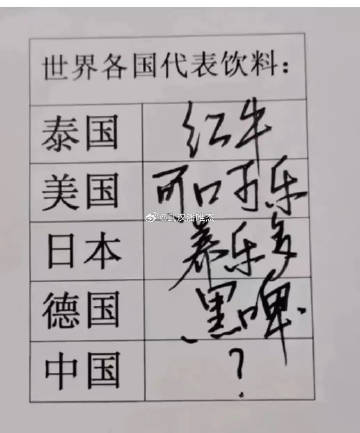 世界各国代表饮料：
泰国 红牛
美国 可口可乐
@武汉潘唯杰
日本 养乐多
德国 黑啤.
中国 ?